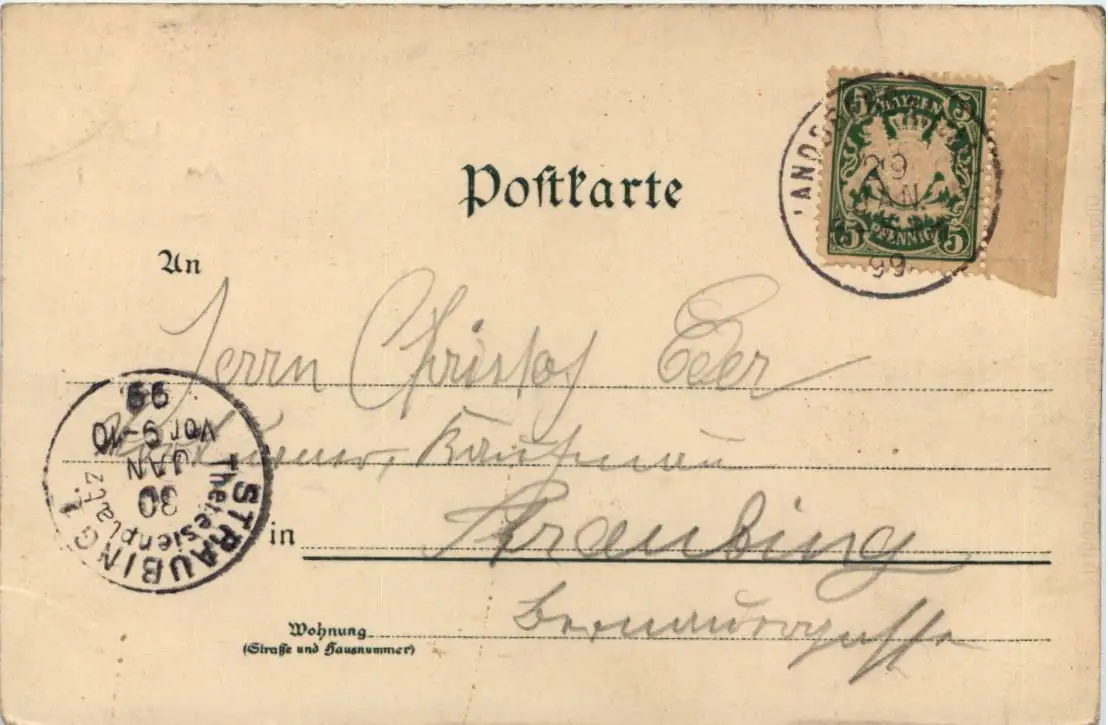 Postkarte
5 BAYERN 5
5 PFENNIG 5
29
JAN.
99
An
Herrn Christof Eder
Kaufman
in Straubing
Wohnung Bernauergasse
(Straße und Hausnummer)
STRAUBING 1.
Theresienplatz
30
JAN
Vor 9-10
99.